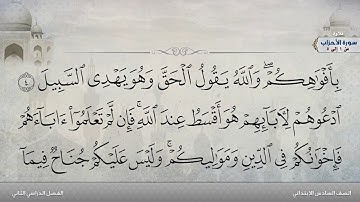 تلاوة
سورة الأحزاب
من ١ إلى ٥
بِأَفْوَٰهِكُمْ ۖ وَٱللَّهُ يَقُولُ ٱلْحَقَّ وَهُوَ يَهْدِى ٱلسَّبِيلَ ٤
ٱدْعُوهُمْ لِـَٔابَآئِهِمْ هُوَ أَقْسَطُ عِندَ ٱللَّهِ ۚ فَإِن لَّمْ تَعْلَمُوٓا۟ ءَابَآءَهُمْ
فَإِخْوَٰنُكُمْ فِى ٱلدِّينِ وَمَوَٰلِيكُمْ ۚ وَلَيْسَ عَلَيْكُمْ جُنَاحٌ فِيمَآ
الصف السادس الابتدائي
الفصل الدراسي الثاني